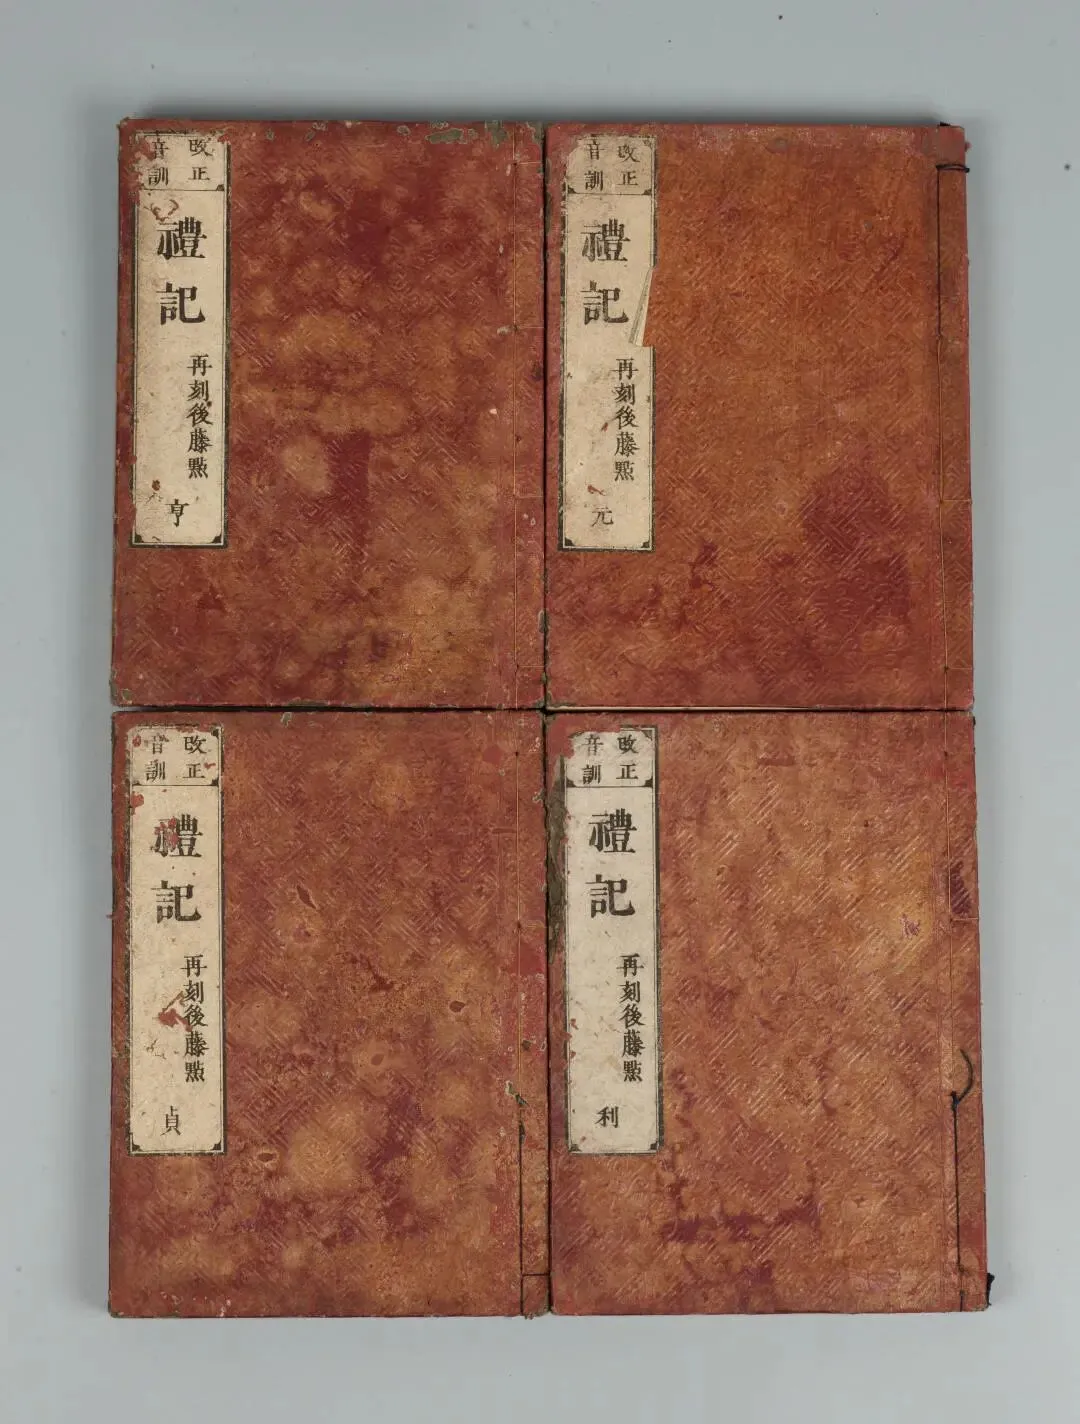 改正
音訓
禮記
再刻後藤點
元
改正
音訓
禮記
再刻後藤點
亨
改正
音訓
禮記
再刻後藤點
利
改正
音訓
禮記
再刻後藤點
貞